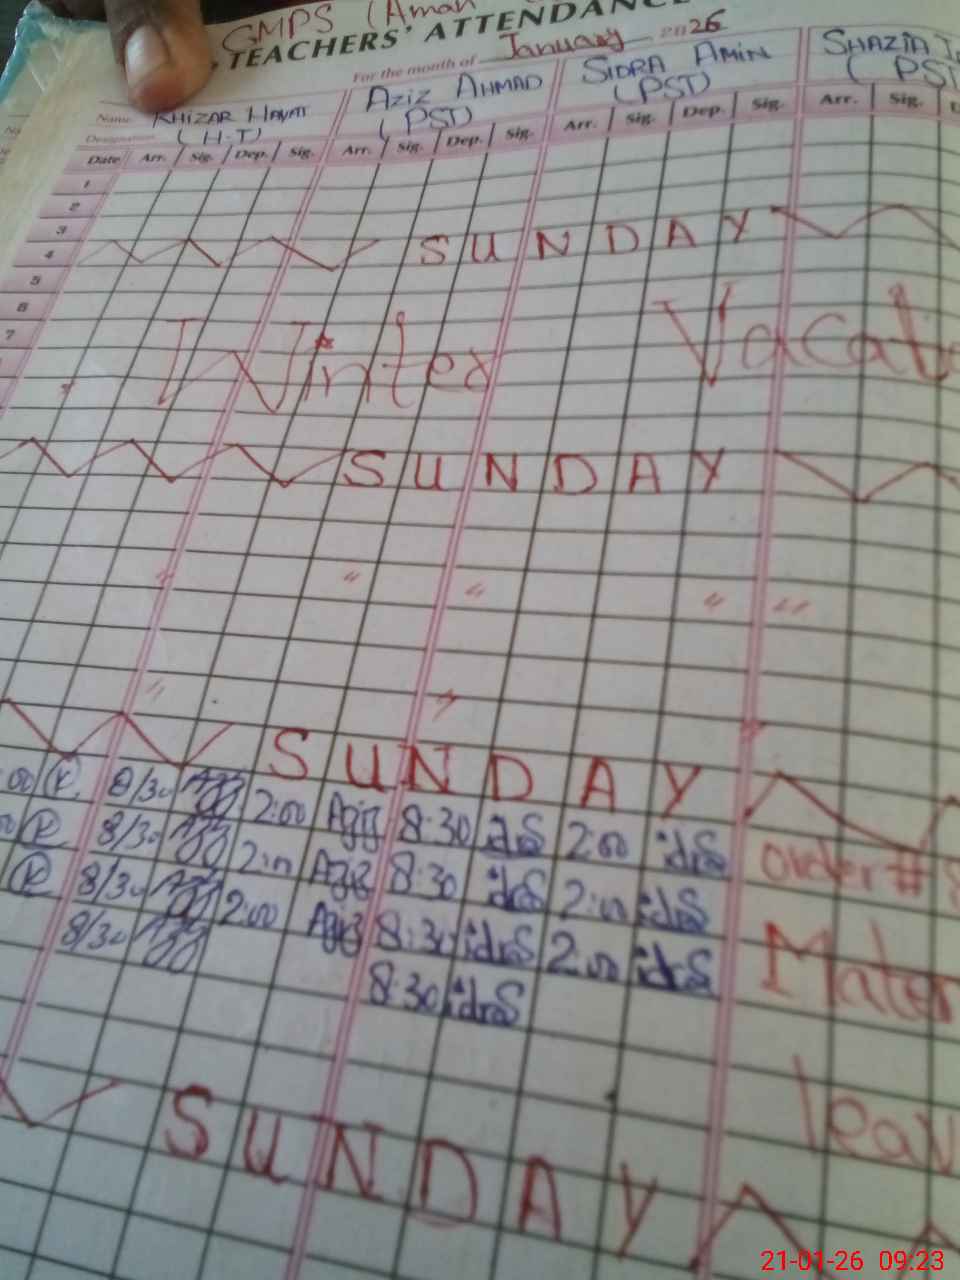 GMPS (Aman
TEACHERS' ATTENDANCE
For the month of January 2026
Name KHIZAR HAYAT AZIZ AHMAD SIDRA AMIN SHAZIA
Designation (H-T) (PST) (PST) (PST
Date Arr. Sig. Dep. Sig. Arr. Sig. Dep. Sig. Arr. Sig. Dep. Sig. Arr. Sig.
1
2
3
4 SUNDAY
5
6
7
Winter Vacat
SUNDAY
SUNDAY
K 8/30 2:00 Aziz 8:30 idrS 2:00 idrS order #
K 8/30 2:00 Aziz 8:30 idrS 2:00 idrS
K 8/30 2:00 Aziz 8:30 idrS 2:00 idrS Mater
8/30 8:30 idrS
leav
SUNDAY
21-01-26 09:23